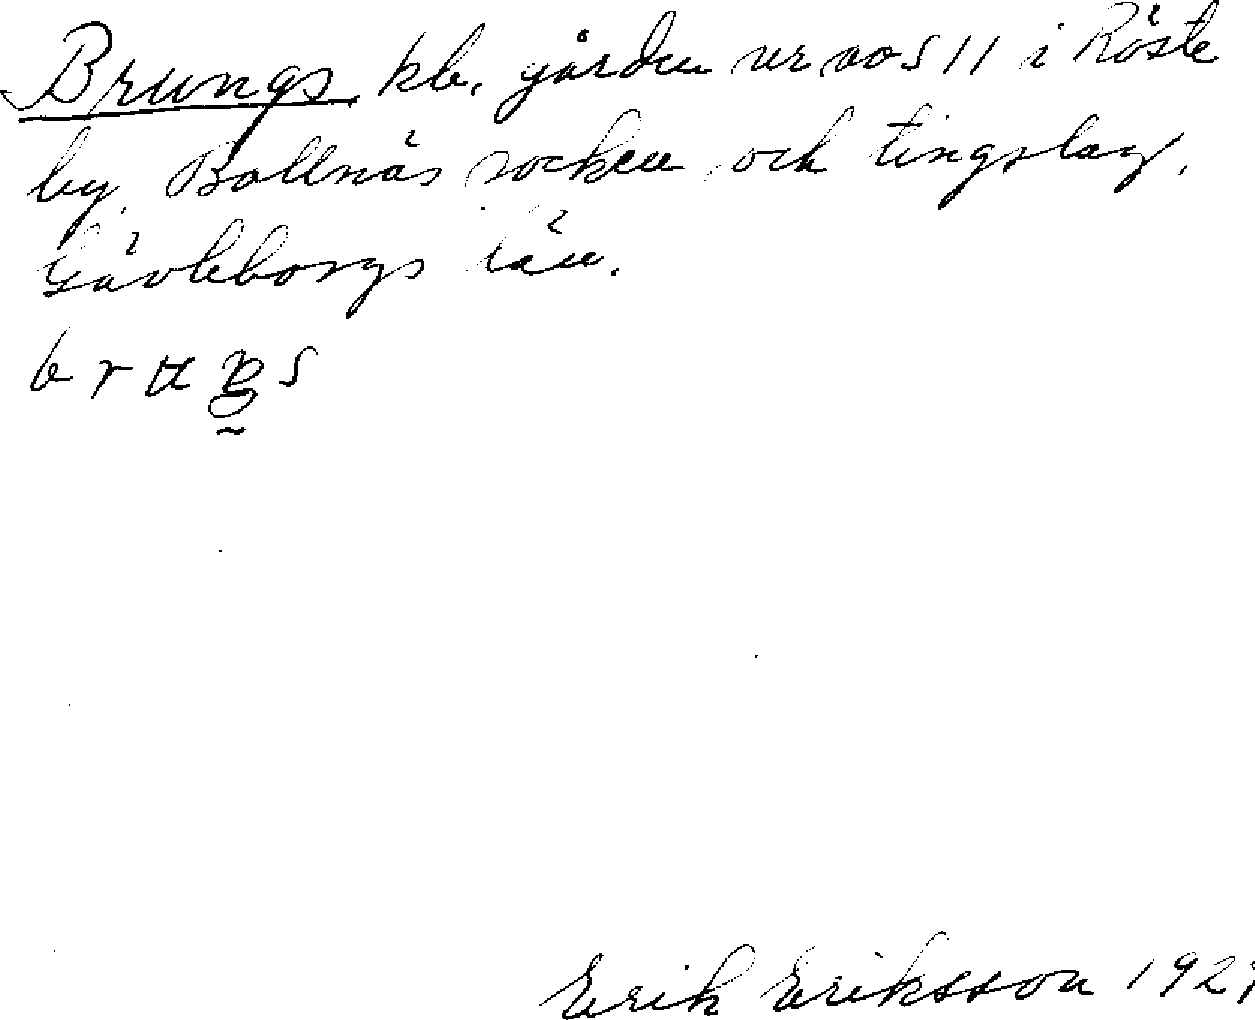 Brungs kb. gården nr 5 11 i Röste
by, Bollnäs socken och tingslag.
Gävleborgs län.
Erik Eriksson 192